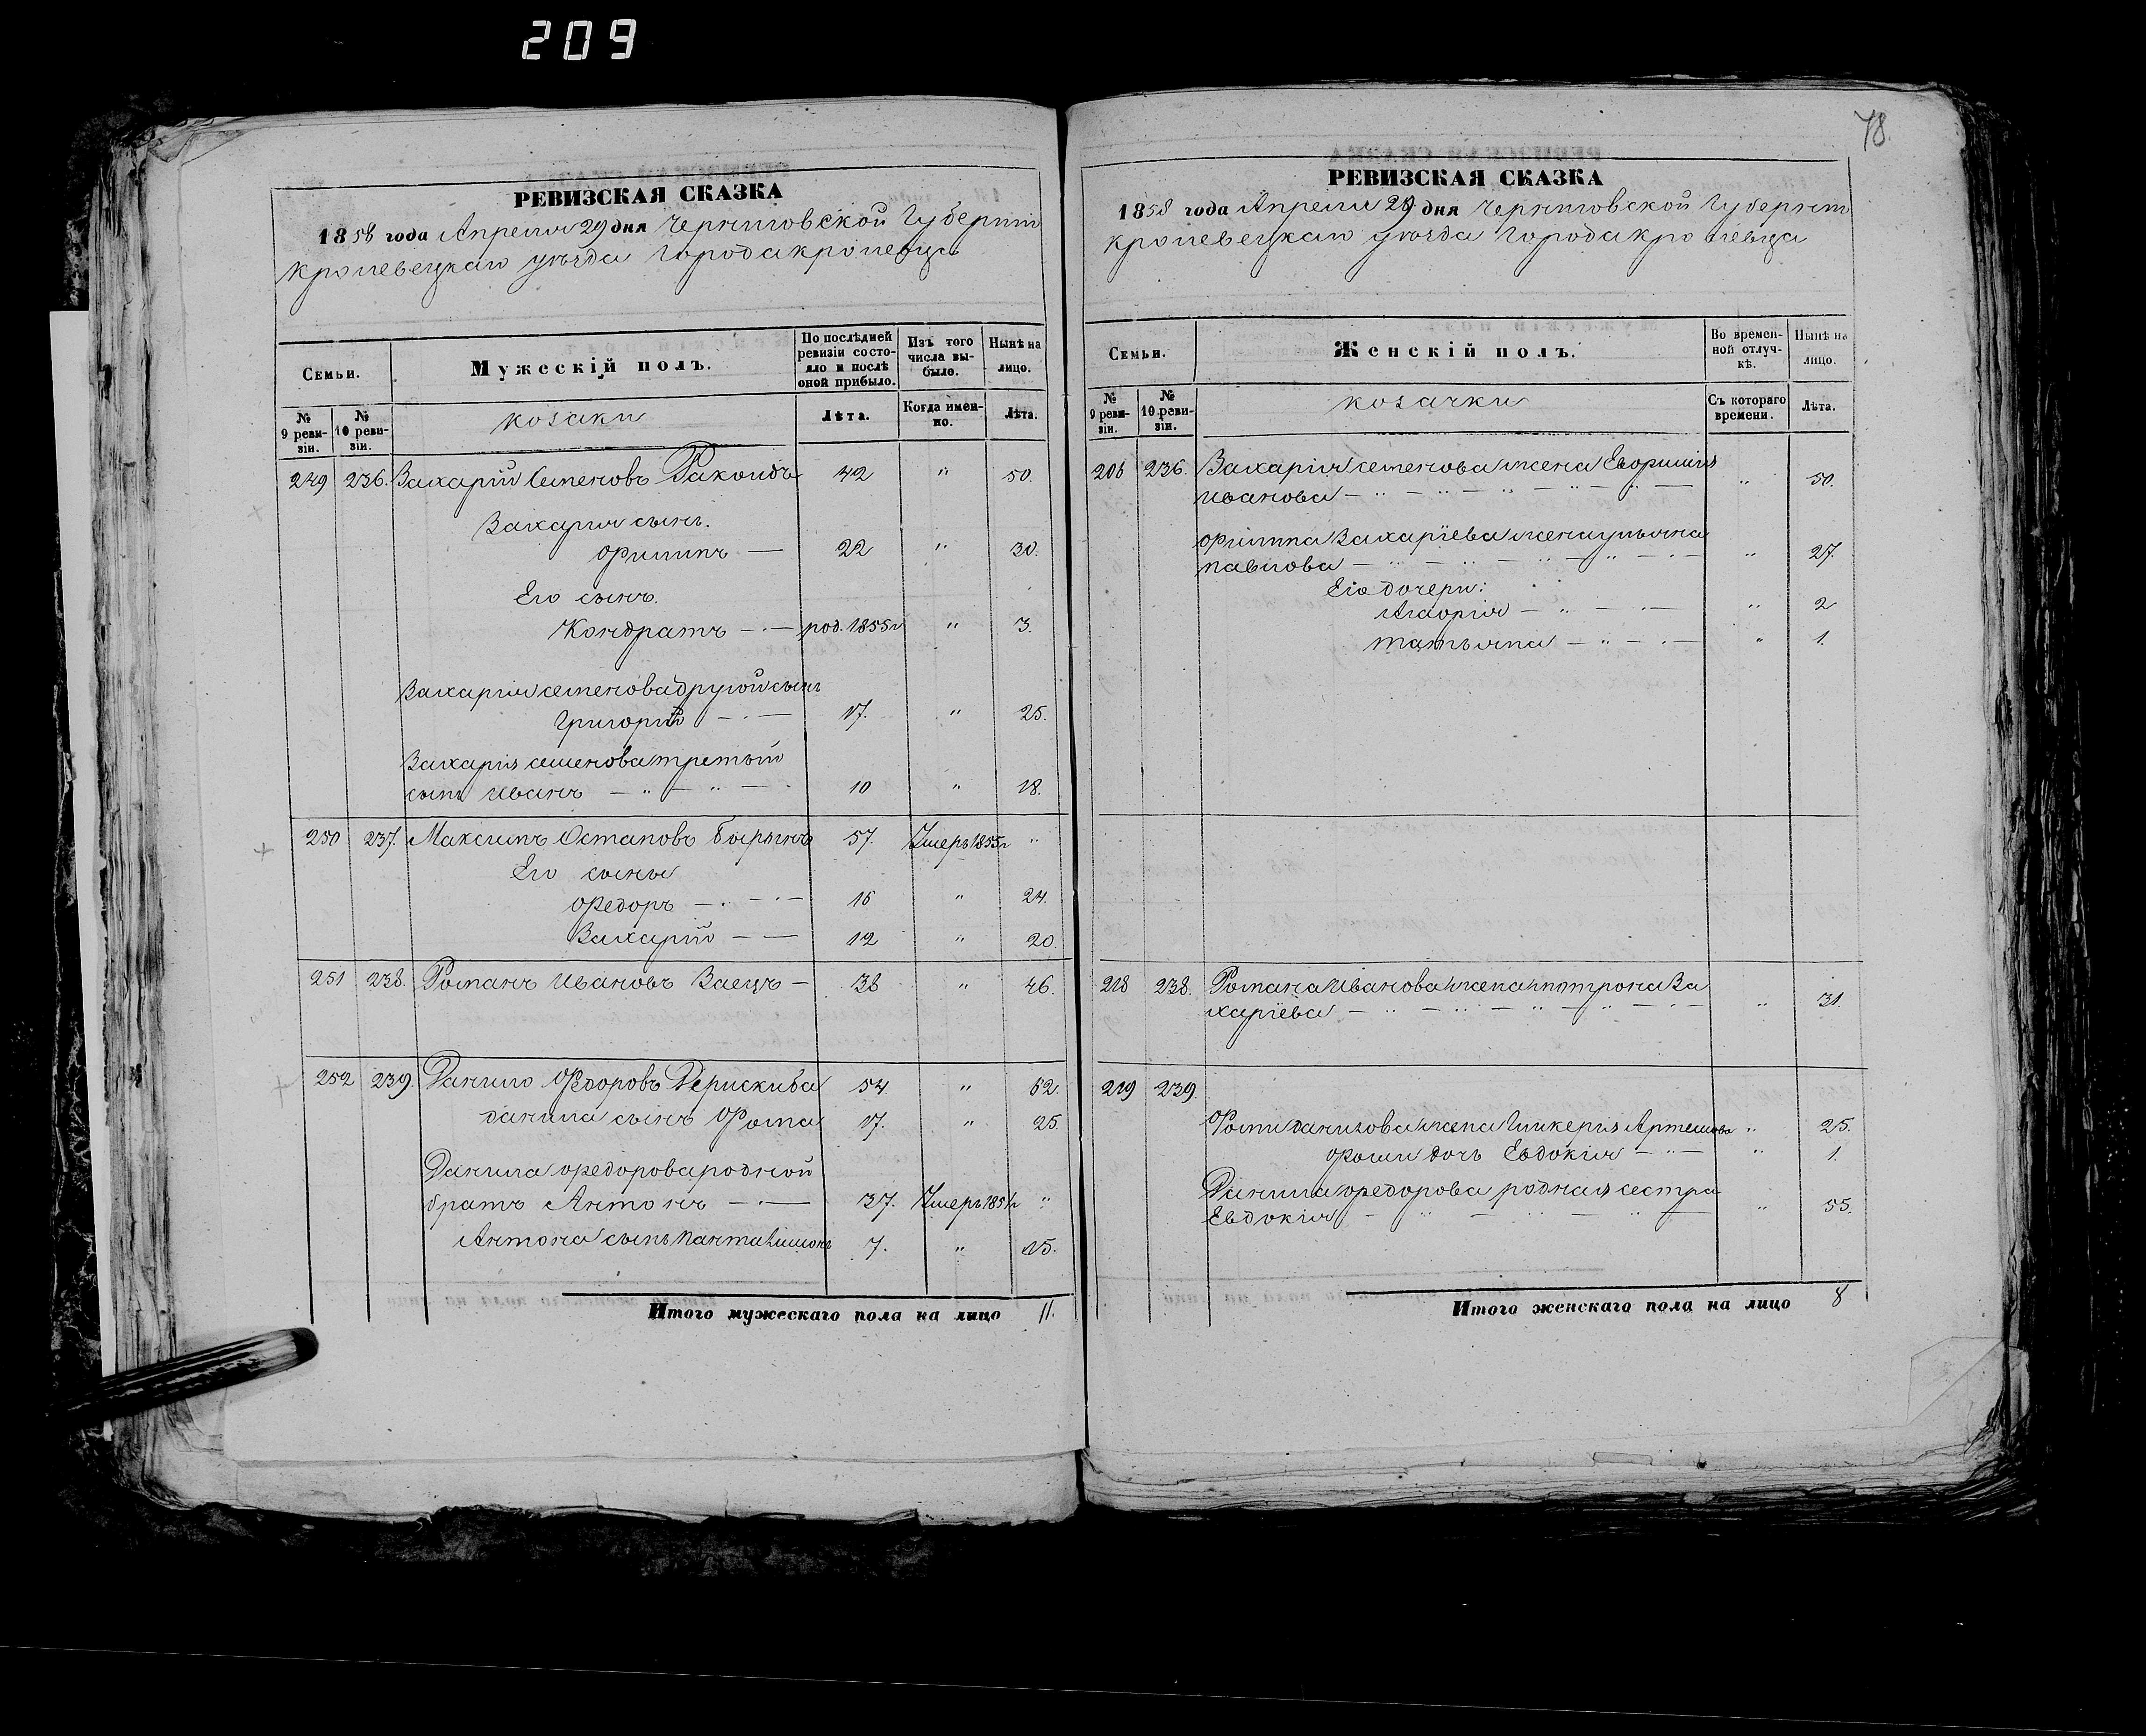 209
78.
РЕВИЗСКАЯ СКАЗКА
1858 года Апреля 29 дня Черниговской Губернии
кролевецкаго уезда Города кролевца
Семьи.
Мужескій полъ.
По послѣдней ревизіи состояло и послѣ оной прибыло.
Изъ того числа выбыло.
Нынѣ на лицо.
№ 9 ревизіи.
№ 10 ревизіи.
козаки
Лѣта.
Когда именно.
Лѣта.
249 236. Захарій Семеновъ 42 " 50.
Захарія сынъ.
Филипъ — 22 " 30.
Его сынъ.
Кондратъ — род. 1855 г " 3.
Захарія семенова другой сынъ
Григорій — 17. " 25.
Захарія семенова третій
сынъ Иванъ — " — " — 10 " 18.
250 237. Максимъ Остаповъ 57. Умеръ 1855 г "
Его сыны
Федоръ — 16 " 24.
Захарій — — 12 " 20.
251 238. Романъ Ивановъ Заецъ — 38 " 46.
252 239. Данило Федоровъ 54 " 62.
данила сынъ Фома 17. " 25.
Данила федорова родной
братъ Антонъ — 37. Умеръ "
Антона сынъ Панталимонъ 7. " 15.
Итого мужескаго пола на лицо 11.
РЕВИЗСКАЯ СКАЗКА
1858 года Апреля 29 дня Черниговской Губерніи
кролевецкаго уезда Города кролевца
Семьи.
Женскій полъ.
Во временной отлучкѣ.
Нынѣ на лицо.
№ 9 ревизіи.
№ 10 ревизіи.
козачки
Съ котораго времени.
Лѣта.
236. Захарія семенова жена
Иванова — " — " — " — 50.
Филипа Захаріева жена ульяна
павлова — " — " — " 27.
Его дочери:
— " — " 2
татьяна — " — " 1.
218 238. Романа Иванова жена мотрона За
харіева — " — " — " — 31.
219 239.
Фомы данилова жена Гликерія Артемова " 25.
фомы дочь Евдокія — " — " 1.
Данила федорова родная сестра
Евдокія — " — " — " 55.
Итого женскаго пола на лицо 8